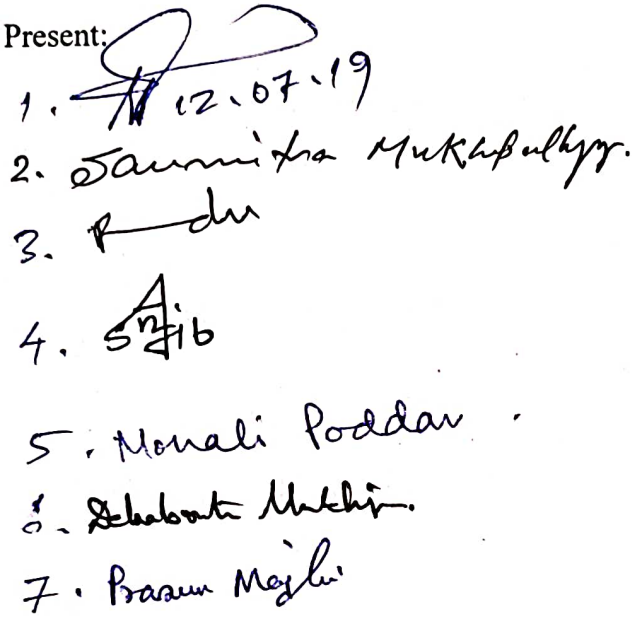 Present:
1. 12.07.19
2. Saumitra Mukhopadhyay.
3.
4. Sanjib
5. Monali Poddar
6. Debabrata
7. Prasun Majhi